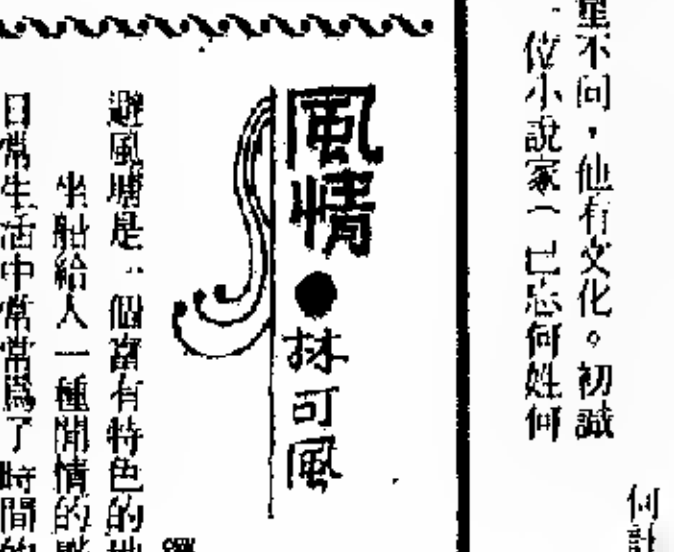 何
量不同，他有文化。初識
一位小說家（已忘何姓何
風情●林可風
避風塘是一個富有特色的
坐船給人一種閒情的
日常生活中常常爲了時間的